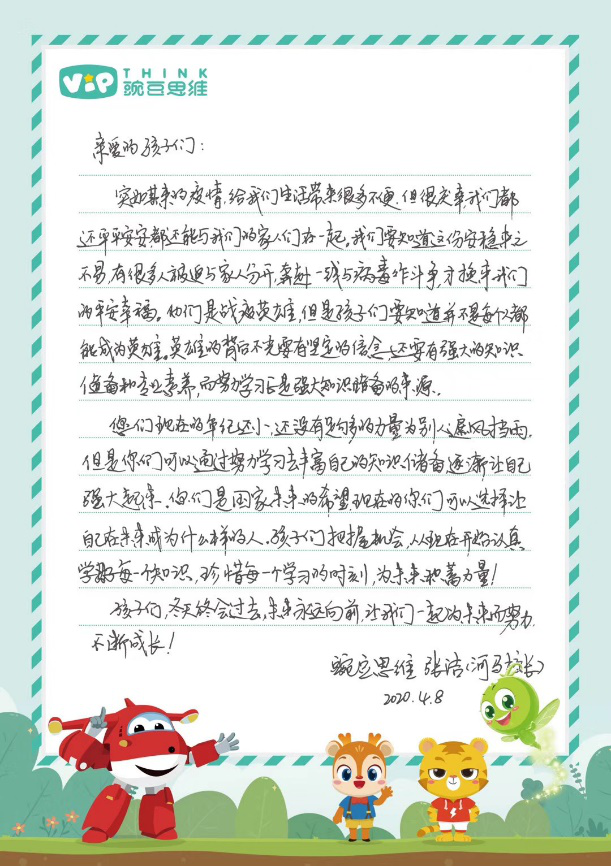 ViP THINK
豌豆思维
亲爱的孩子们:
突如其来的疫情,给我们生活带来很多不便,但很庆幸,我们都
还平平安安都还能与我们的家人们在一起。我们要知道这份安稳来之
不易,有很多人被迫与家人分开,奔赴一线与病毒作斗争,才换来我们
的平安幸福。他们是战疫英雄,但是孩子们要知道并不是每个人都
能成为英雄。英雄的背后不光要有坚定的信念,还要有强大的知识
储备和专业素养,而努力学习正是强大知识储备的来源。
你们现在的年纪还小,还没有足够多的力量为别人遮风挡雨,
但是你们可以通过努力学习去丰富自己的知识储备逐渐让自己
强大起来。你们是国家未来的希望现在的你们可以选择让
自己在未来成为什么样的人。孩子们把握机会,从现在开始认真
学好每一个知识,珍惜每一个学习的时刻,为未来积蓄力量!
孩子们,冬天终会过去,未来永远向前,让我们一起为未来而努力,
不断成长!
豌豆思维 张洁(河马校长)
2020.4.8